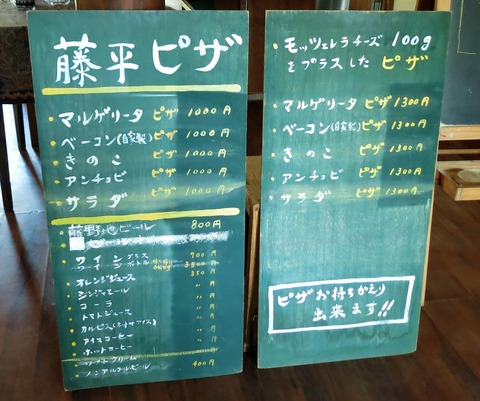 藤平ピザ
・マルゲリータ ピザ 1000円
・ベーコン(自家製) ピザ 1000円
・きのこ ピザ 1000円
・アンチョビ ピザ 1000円
・サラダ ピザ 1000円
藤野地ビール 800円
・ワイン グラス 700円
ワイン ボトル 3500円
・オレンジジュース 350円
・ジンジャエール 〃円
・コーラ 〃円
・トマトジュース 〃円
・カルピス 〃円
・アイスコーヒー 〃円
・ホットコーヒー 〃円
・ノンアルコールビール 400円
・モッツェレラチーズ 100g
をプラスした ピザ
・マルゲリータ ピザ 1300円
・ベーコン(自家製) ピザ 1300円
・きのこ ピザ 1300円
・アンチョビ ピザ 1300円
・サラダ ピザ 1300円
ピザお持ちかえり
出来ます!!